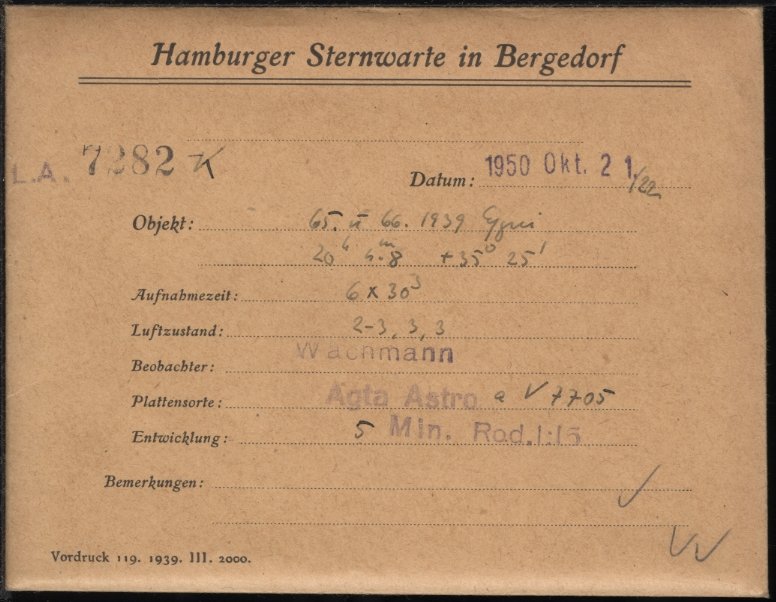 Hamburger Sternwarte in Bergedorf
L.A. 7282 K
Datum: 1950 Okt. 21./22
Objekt: 65. u 66. 1939 Cygni
20h 4.m8 +35° 25'
Aufnahmezeit: 6 x 30
Luftzustand: 2-3, 3, 3
Beobachter: Wachmann
Plattensorte: Agfa Astro a V 7705
Entwicklung: 5 Min. Rod. 1:15
Bemerkungen:
Vordruck 119. 1939. III. 2000.